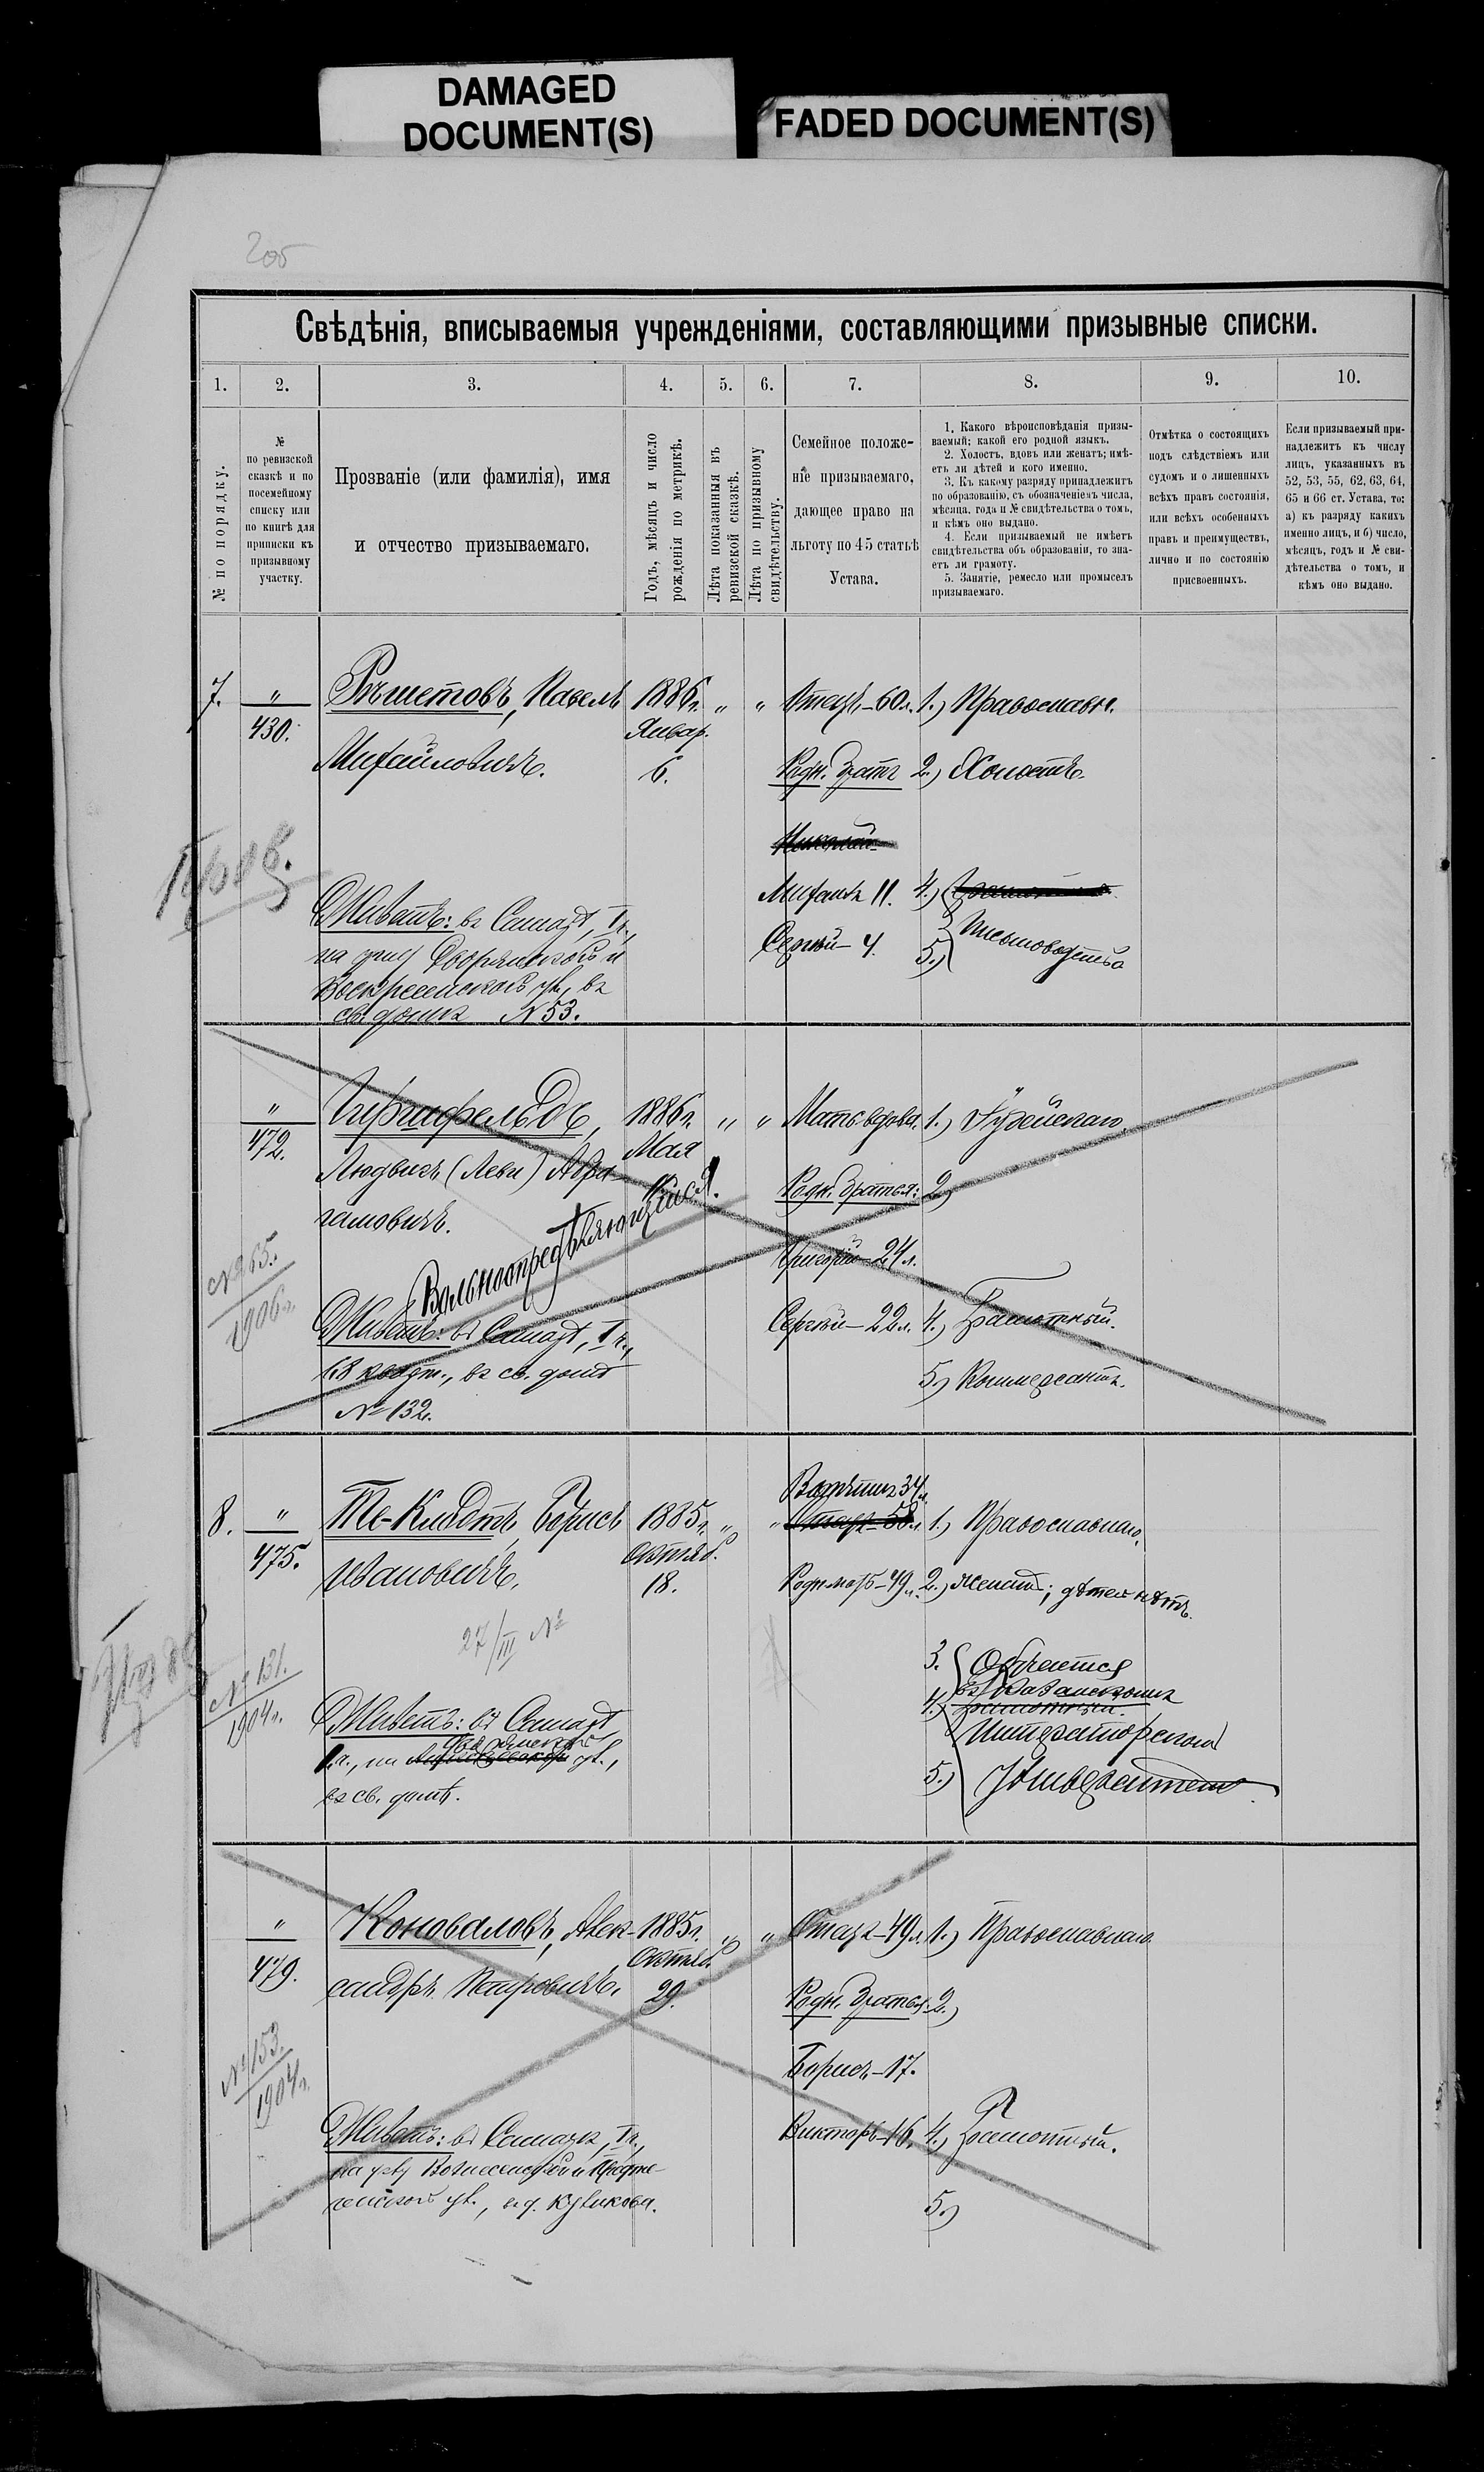 DAMAGED
DOCUMENT(S)
FADED DOCUMENT(S)
Свѣдѣнія, вписываемыя учрежденіями, составляющими призывные списки.
1. 2. 3. 4. 5. 6. 7. 8. 9. 10.
№ по порядку.
№
по ревизской
сказкѣ и по
посемейному
списку или
по книгѣ для
приписки къ
призывному
участку.
Прозваніе (или фамилія), имя
и отчество призываемаго.
Годъ, мѣсяцъ и число
рожденія по метрикѣ.
Лѣта показанныя въ
ревизской сказкѣ.
Лѣта по призывному
свидѣтельству.
Семейное положе-
ніе призываемаго,
дающее право на
льготу по 45 статьѣ
Устава.
1. Какого вѣроисповѣданія призы-
ваемый; какой его родной языкъ.
2. Холостъ, вдовъ или женатъ; имѣ-
етъ ли дѣтей и кого именно.
3. Къ какому разряду принадлежитъ
по образованію, съ обозначеніемъ числа,
мѣсяца, года и № свидѣтельства о томъ,
и кѣмъ оно выдано.
4. Если призываемый не имѣетъ
свидѣтельства объ образованіи, то зна-
етъ ли грамоту.
5. Занятіе, ремесло или промыселъ
призываемаго.
Отмѣтка о состоящихъ
подъ слѣдствіемъ или
судомъ и о лишенныхъ
всѣхъ правъ состоянія,
или всѣхъ особенныхъ
правъ и преимуществъ,
лично и по состоянію
присвоенныхъ.
Если призываемый при-
надлежитъ къ числу
лицъ, указанныхъ въ
52, 53, 55, 62, 63, 64,
65 и 66 ст. Устава, то:
а) къ разряду какихъ
именно лицъ, и б) число,
мѣсяцъ, годъ и № сви-
дѣтельства о томъ, и
кѣмъ оно выдано.
7. " Рѣшетовъ, Павелъ 1886г. " " Отецъ-60л. 1.) Православн.
430. Январ.
Михайловичъ. 6. Родн. братья 2.) Холостъ.
Николай
Михаилъ 11. 4.)
Живетъ: въ Самарѣ, Iч.,
Сергѣй-4. 5.) Письмоводство
на углу Дворянской и
Воскресенской ул., въ
св. домѣ №53.
" Гиршфельдъ, 1886г. " " Мать вдова. 1.) Іудейскаго.
472. Мая
Людвигъ (Леви) Абра-
гамовичъ. Родн. братья: 2.)
Вольноопредѣляющійся.
№65.
1906г.
Григорій-24л.
Живетъ: въ Самарѣ, Iч., Сергѣй-22л. 4.) Грамотный.
68 кварт., въ св. домѣ 5.) Коммерсантъ.
№132.
Вотчимъ 34л.
8. " Те-Кивдтъ, Борисъ 1885г. " " Отецъ-58л. 1.) Православнаго.
475. Октяб.
Ивановичъ. 18. Родн. мать-49л. 2.) Женатъ; дѣтей нѣтъ.
27/III №
№131.
1904г.
3. Обучается
4.) въ Казанскомъ
грамотный.
Живетъ: въ Самарѣ
Императорскомъ
Дворянской
ул.,
5.) Университетѣ
въ св. домѣ.
" Коноваловъ, Алек- 1885г. " " Отецъ-49л. 1.) Православнаго.
479. Октяб.
сандръ Петровичъ. 29. Родн. братья 2.)
№153.
1904г.
Борисъ-17.
Живетъ: въ Самарѣ, Iч., Викторъ-16. 4.) Грамотный.
на углу Вознесенской и Предте-
ченской ул., въ д. Куликова. 5.)